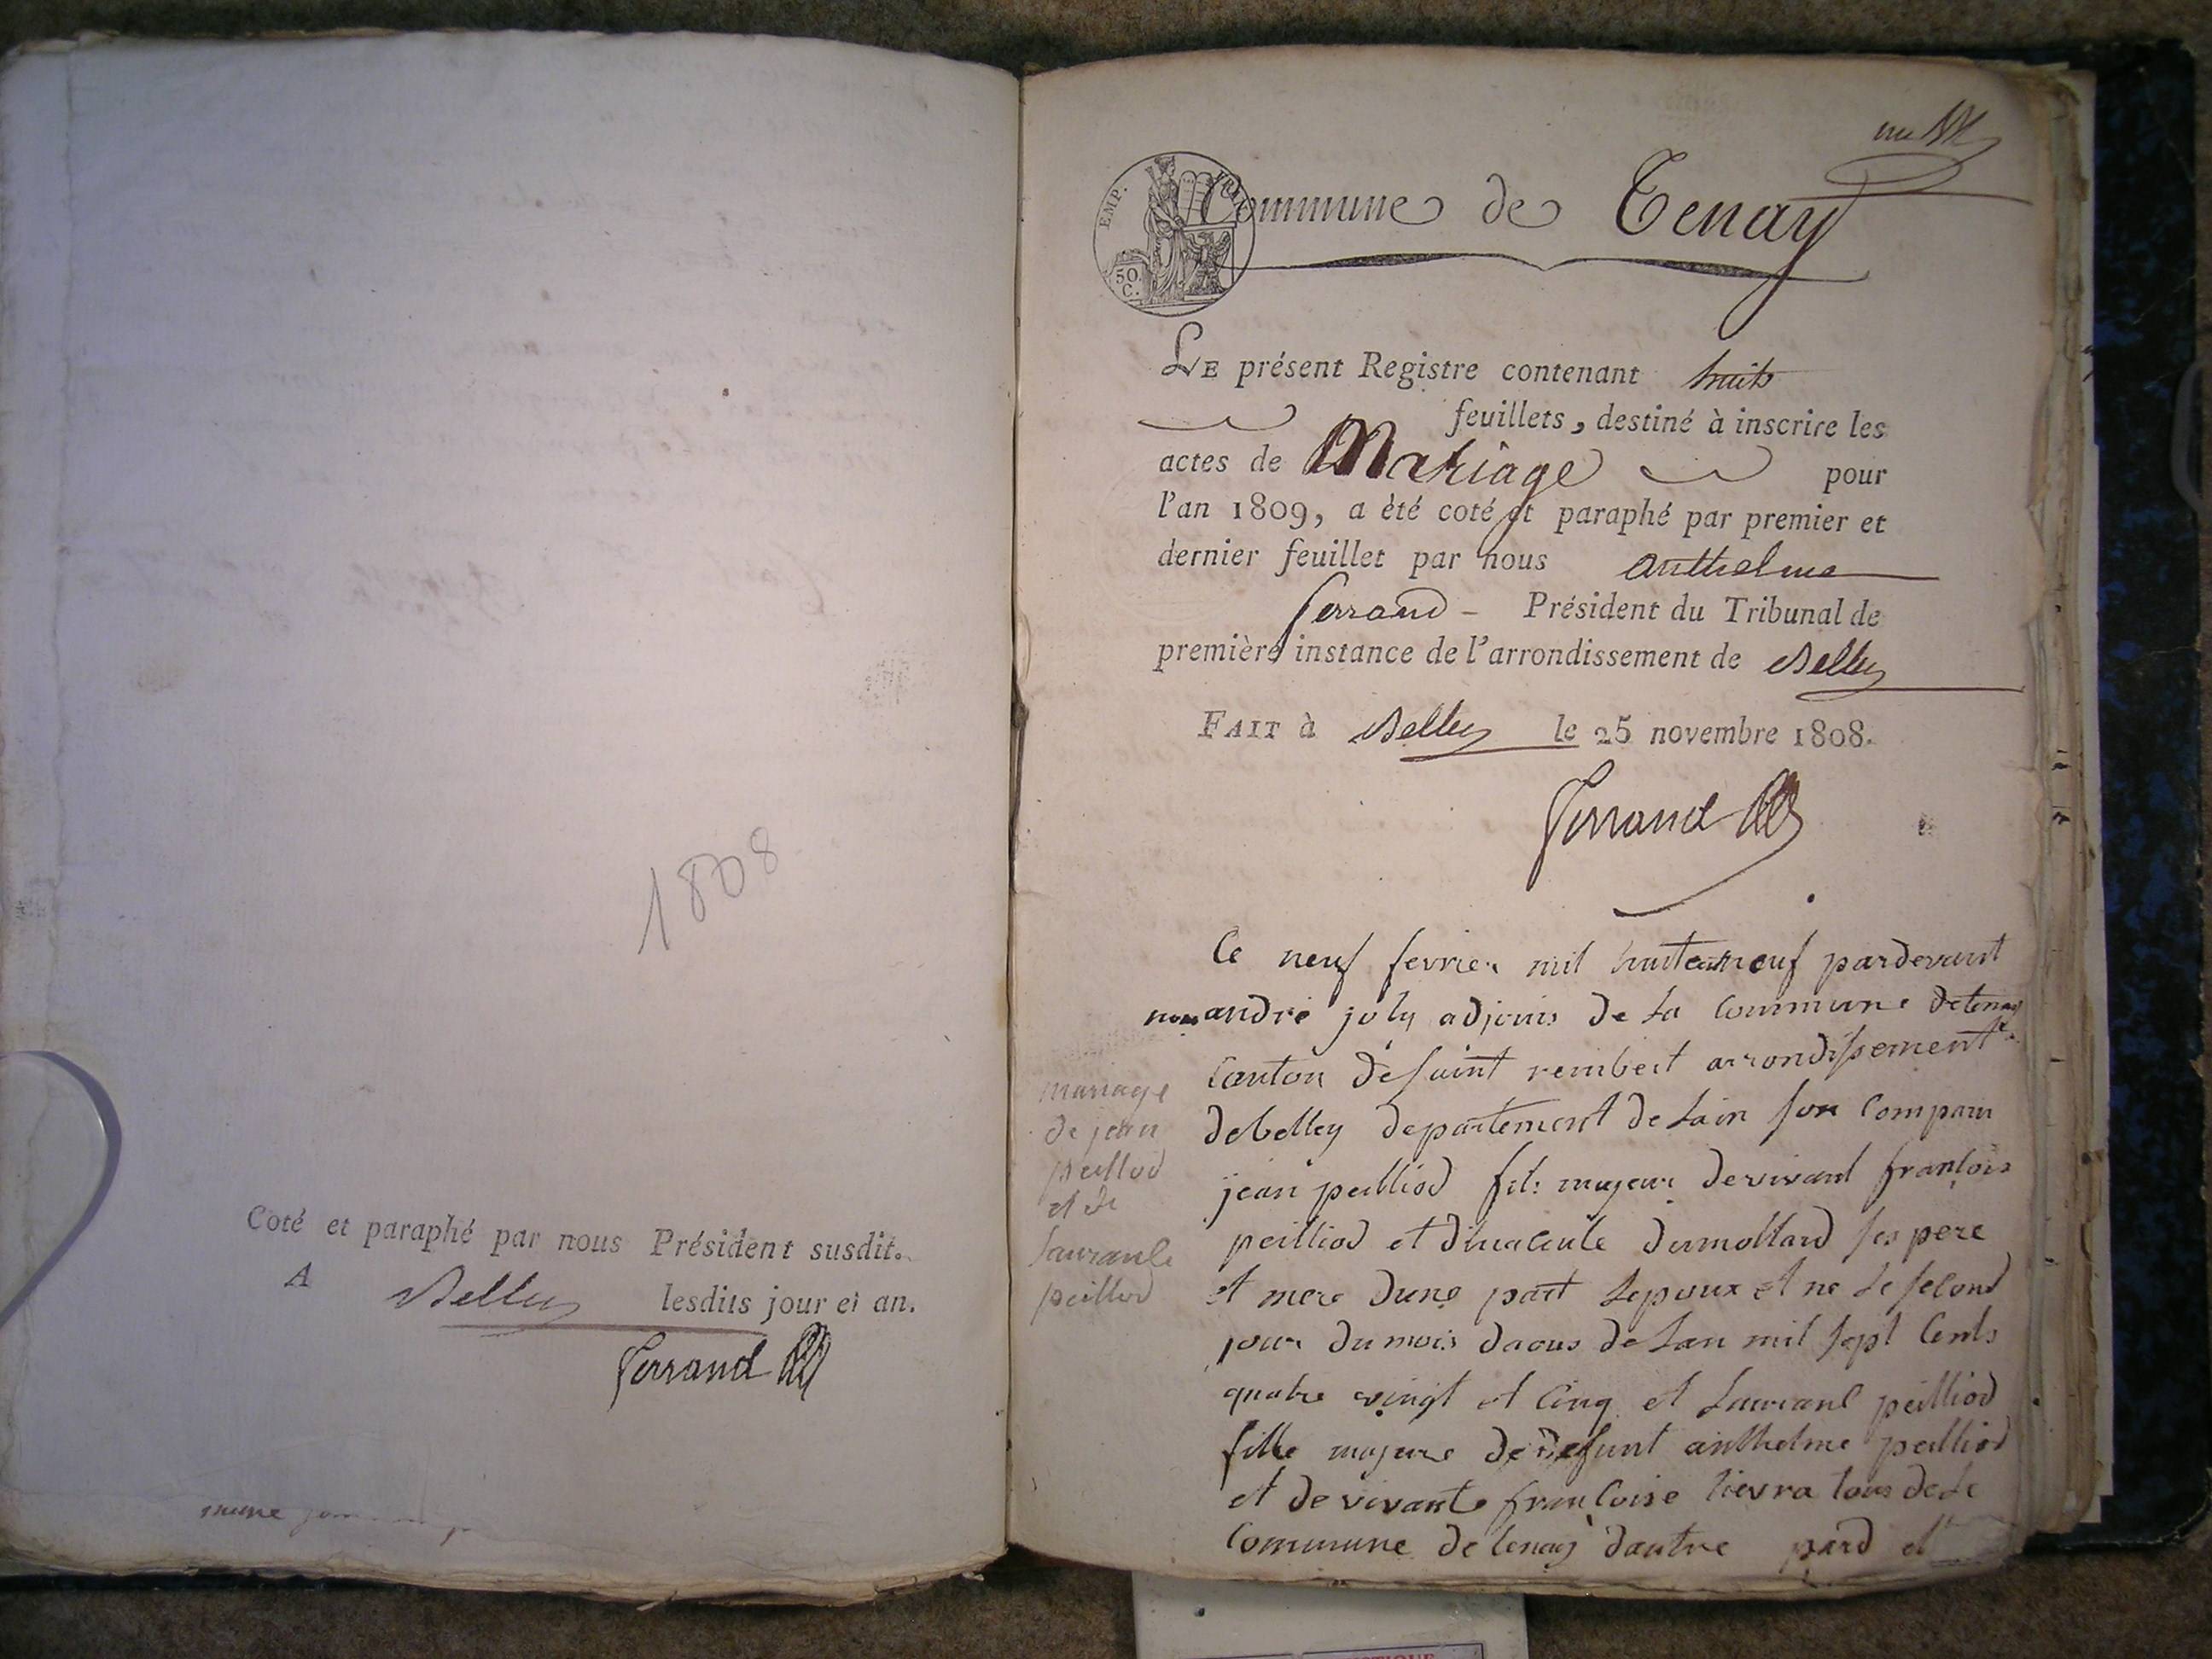 1808
Coté et paraphé par nous Président susdit.
A Belley lesdits jour et an.
Ferrand
EMP. FRAN.
50 C.
Commune de Tenay
LE présent Registre contenant huit
feuillets, destiné à inscrire les
actes de Mariage pour
l'an 1809, a été coté et paraphé par premier et
dernier feuillet par nous anthelme
ferrand - Président du Tribunal de
première instance de l'arrondissement de Belley
FAIT à Belley le 25 novembre 1808.
Ferrand
mariage
de jean
peilliod
et de
lauranse
peilliod
Ce neuf fevrier mil huit cent neuf pardevant
nous andré joly adjoins de la Commune de tenay
Canton de saint rembert arrondissement
de belley departement de lain son Comparu
jean peilliod fils majeur de vivant françois
peilliod et dumollard ses pere
et mere dune part lepoux et ne le second
jour du mois daous de lan mil sept Cents
quatre vingt et Cinq et peilliod
fille majeure de defunt anthelme peilliod
et de vivante françoise tievra tous de le
Commune de tenay dautre pard et